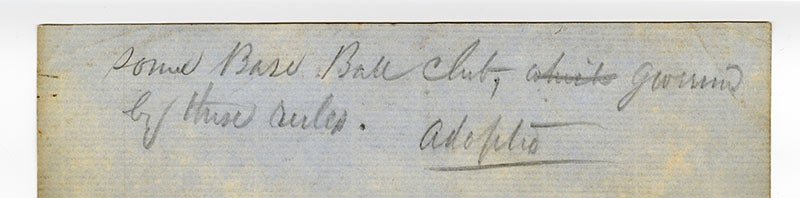 some Base Ball Club, which governed
by these rules. Adopted